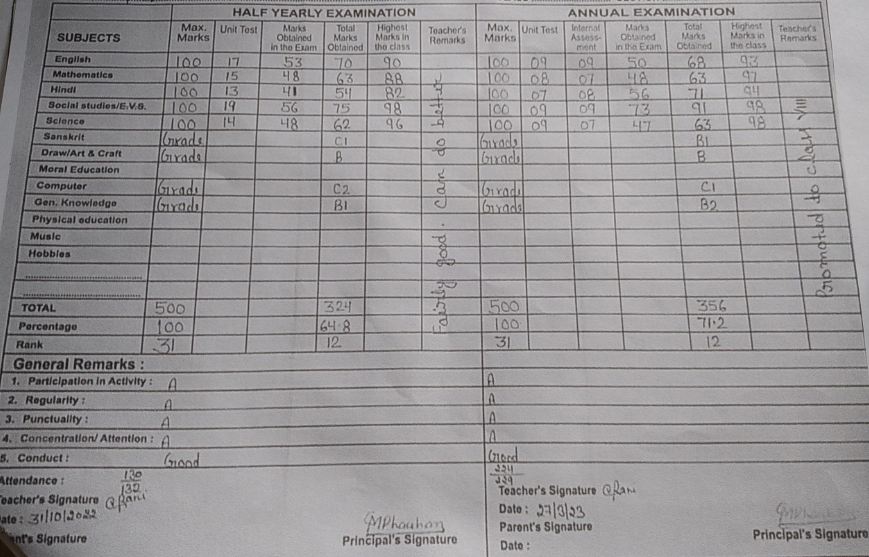 HALF YEARLY EXAMINATION ANNUAL EXAMINATION
SUBJECTS Max. Marks Unit Test Marks Obtained in the Exam Total Marks Obtained Highest Marks in the class Teacher's Remarks Max. Marks Unit Test Internal Assess-ment Marks Obtained in the Exam Total Marks Obtained Highest Marks in the class Teacher's Remarks
English 100 17 53 70 90 100 09 09 50 68 93
Mathematics 100 15 48 63 88 100 08 07 48 63 97
Hindi 100 13 41 54 82 100 07 08 56 71 94
Social studies/E.V.S. 100 19 56 75 98 100 09 09 73 91 98
Science 100 14 48 62 96 100 09 07 47 63 98
Sanskrit Grade C1 Grade B1
Draw/Art & Craft Grade B Grade B
Moral Education
Computer Grade C2 Grade C1
Gen. Knowledge Grade B1 Grade B2
Physical education
Music
Hobbies
Fairly good. Can do better
Promoted to class VIII
TOTAL 500 324 500 356
Percentage 100 64.8 100 71.2
Rank 31 12 31 12
General Remarks :
1. Participation in Activity : A A
2. Regularity : A A
3. Punctuality : A A
4. Concentration/ Attention : A A
5. Conduct : Good Good
Attendance : 130 224
132 229
Teacher's Signature Rani Teacher's Signature Rani
Date : 31/10/2022 Date : 27/3/23
Parent's Signature
ent's Signature Principal's Signature Principal's Signature
Date :